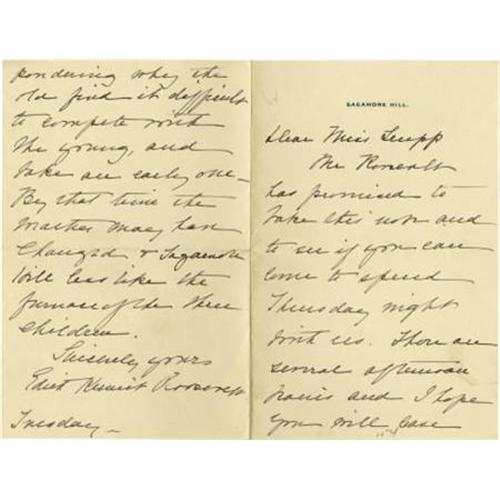 SAGAMORE HILL.
Dear Miss Leupp
Mr Roosevelt
has promised to
take this note and
to see if you can
come to spend
Thursday night
with us. There are
several afternoon
trains and I hope
you will
pondering why the
old find it difficult
to compete with
the young, and
take an early one -
By that time the
weather may have
changed & Sagamore
will be less like the
furnace of the three
children.
Sincerely yours
Edith Kermit Roosevelt
Tuesday -